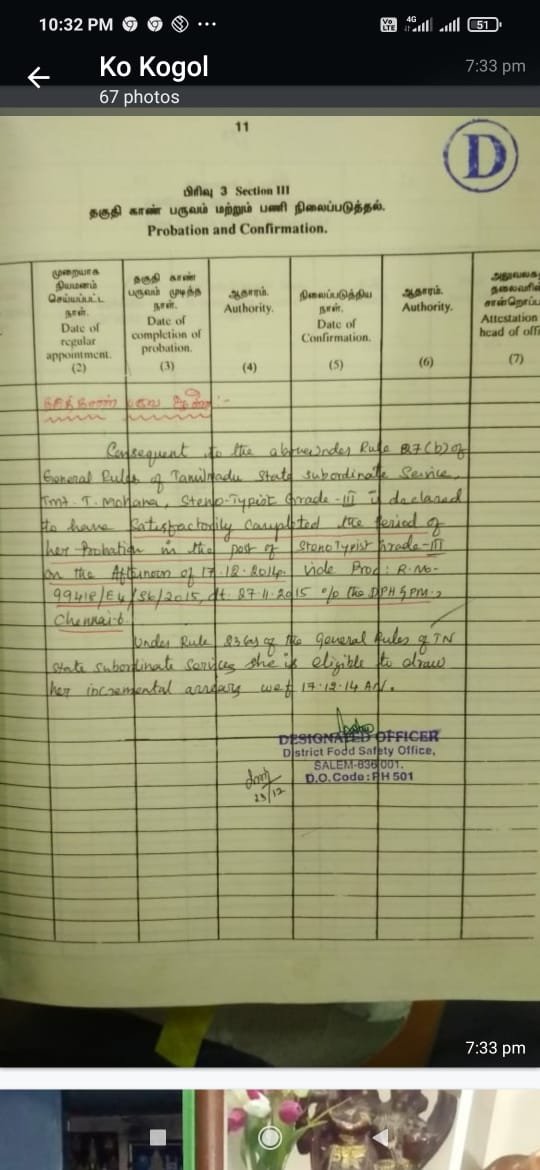 10:32 PM
Vo LTE 4G 51
Ko Kogol
67 photos
7:33 pm
11
D
பிரிவு 3 Section III
தகுதி காண் பருவம் மற்றும் பணி நிலைப்படுத்தல்.
Probation and Confirmation.
முறையாக நியமனம் செய்யப்பட்ட நாள். Date of regular appointment. (2)
தகுதி காண் பருவம் முடித்த நாள். Date of completion of probation. (3)
ஆதாரம். Authority. (4)
நிலைப்படுத்திய நாள். Date of Confirmation. (5)
ஆதாரம். Authority. (6)
அலுவலக தலைவரின் சான்றொப்ப Attestation head of offi (7)
தகுதிகாண் பருவ
Consequent to the above under Rule 27(b) of
General Rules of Tamilnadu State Subordinate Service,
Tmt. T. Mohana, Steno-Typist Grade-III is declared
to have Satisfactorily Completed the period of
her Probation in the post of Steno Typist Grade-III
on the Afternoon of 17.12.2014. Vide Proc: R.No-
99418/E4/S6/2015, dt. 27.11.2015 o/o the DPH & PM.,
Chennai-6.
Under Rule of the General Rules of TN
State Subordinate Services she is eligible to draw
her incremental arrears wef 17.12.14 AN.
DESIGNATED OFFICER
District Food Safety Office,
SALEM-636 001.
D.O.Code:PH 501
23/12
7:33 pm